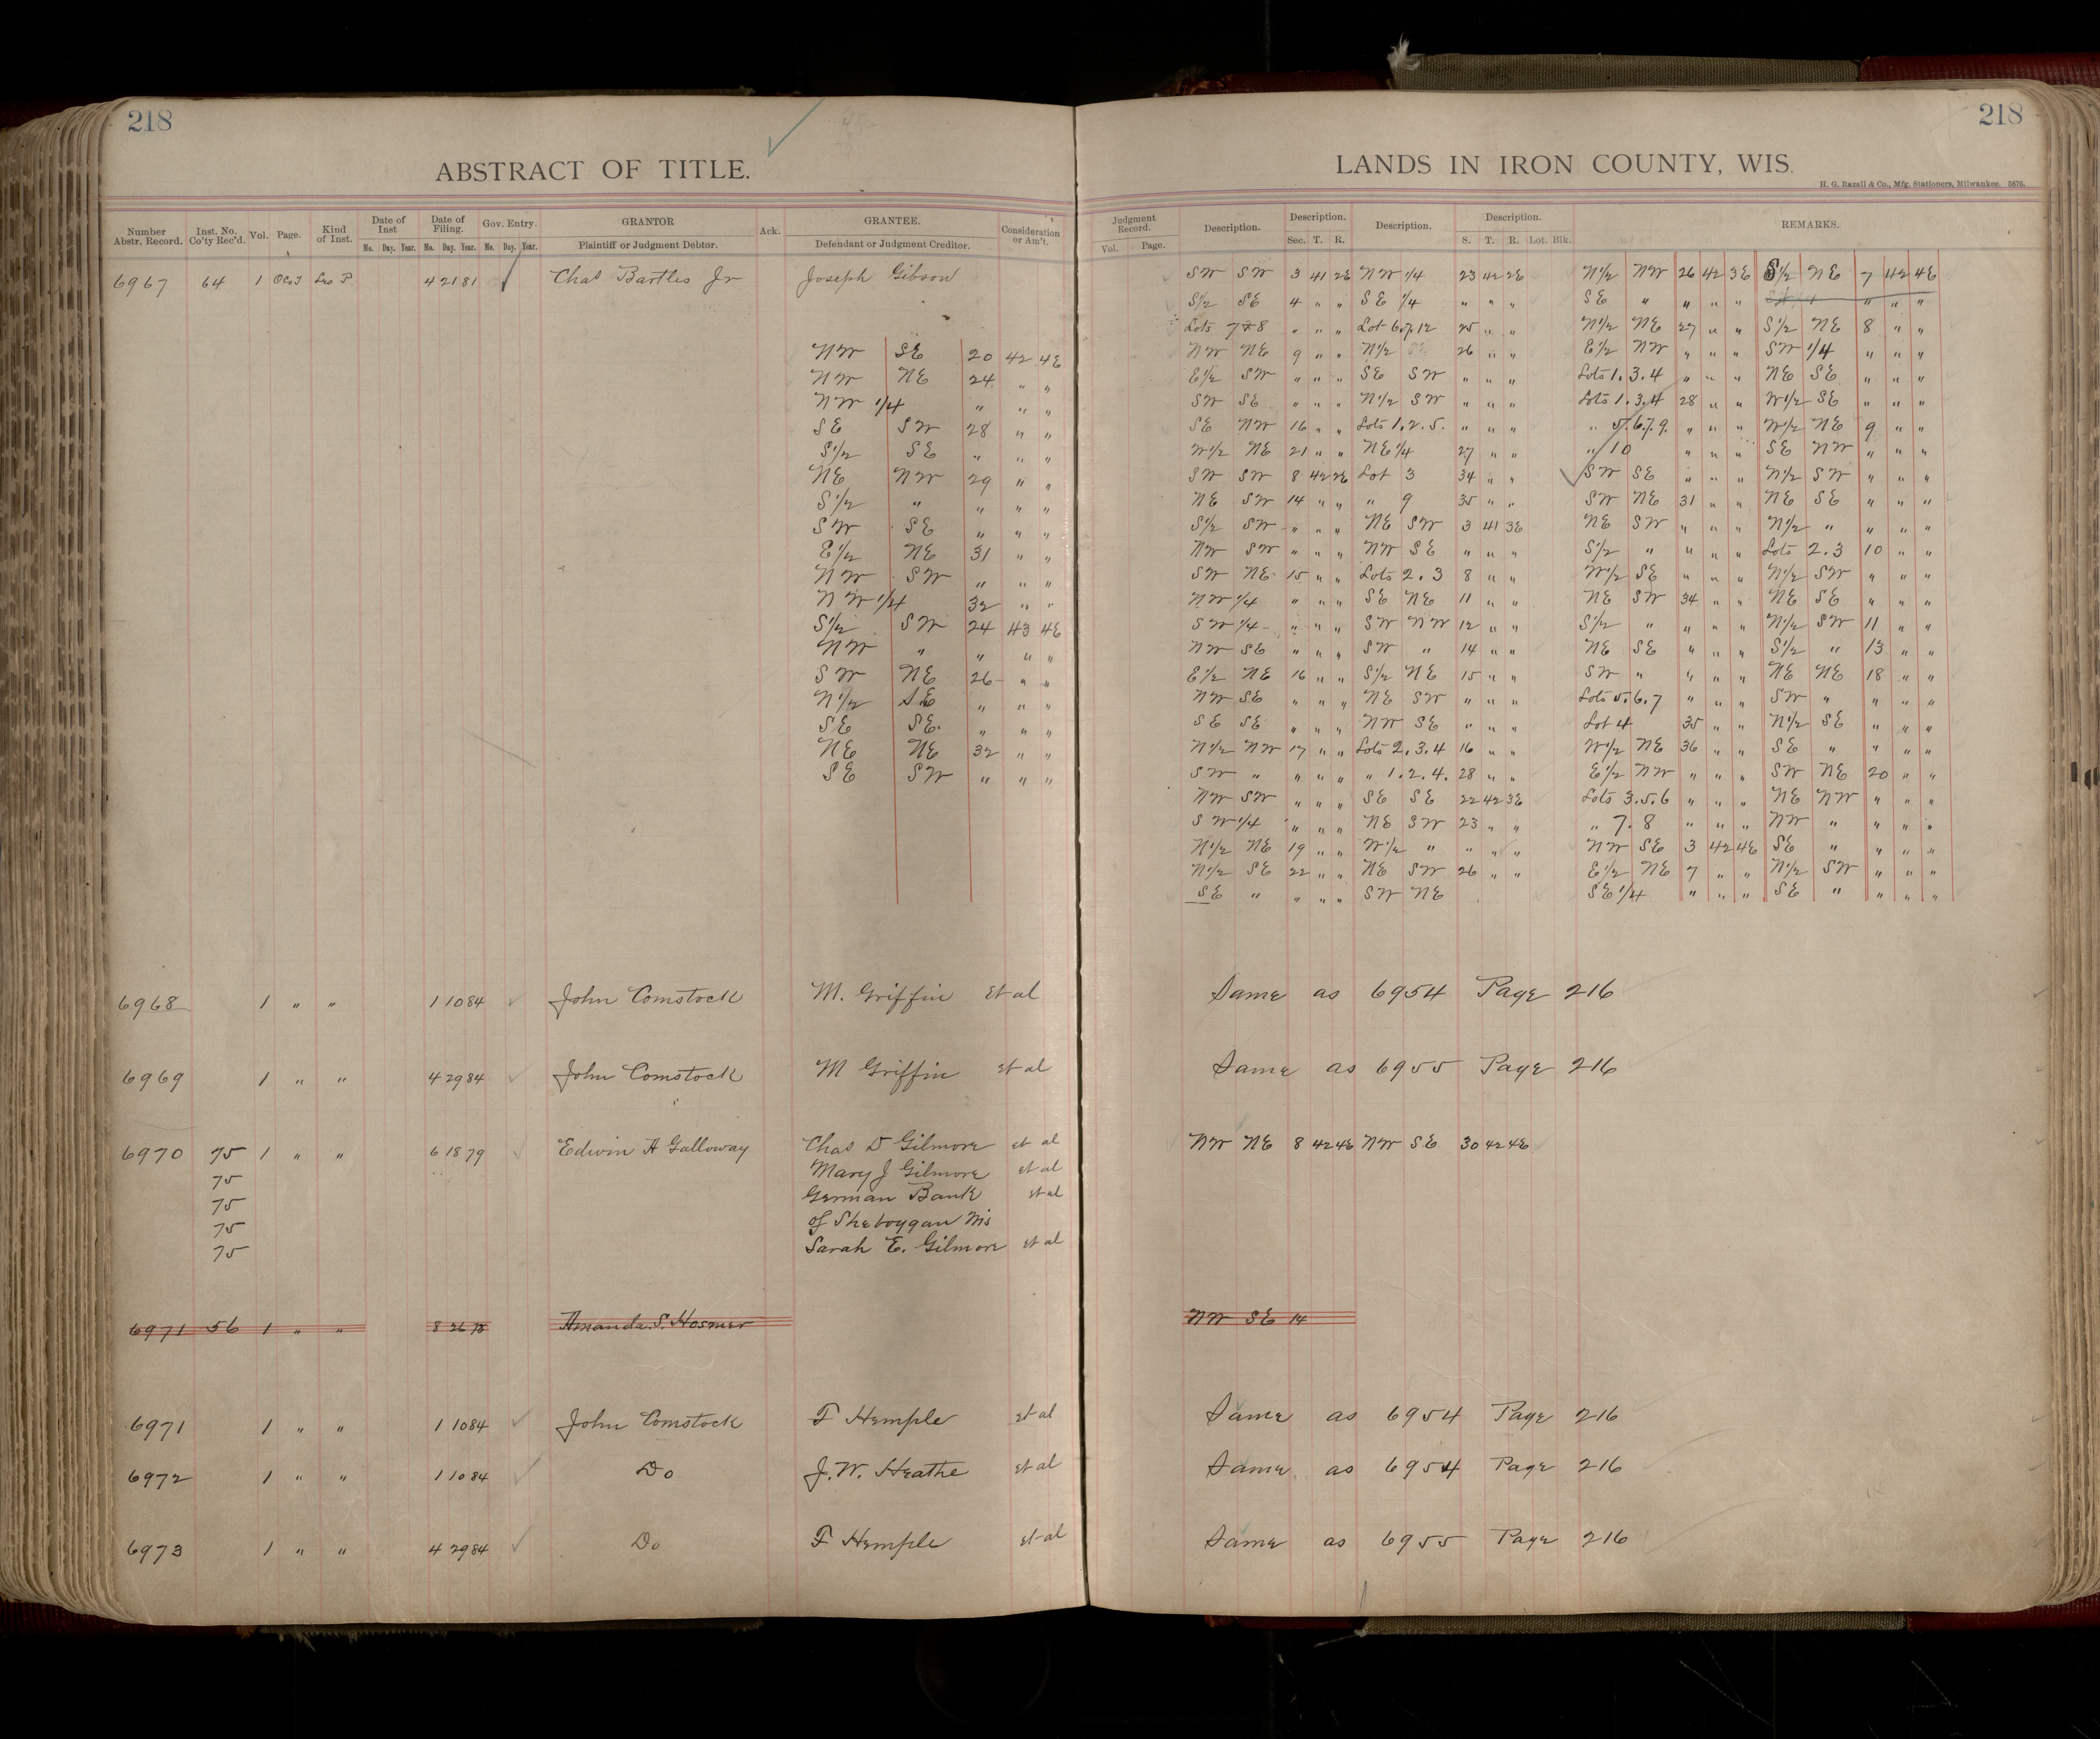 218
218
ABSTRACT OF TITLE.
LANDS IN IRON COUNTY, WIS.
H. G. Razall & Co., Mfg. Stationers, Milwaukee. 5876.
Number Abstr. Record. Inst. No. Co'ty Rec'd. Vol. Page. Kind of Inst. Date of Inst Date of Filing. Gov. Entry. GRANTOR Ack. GRANTEE. Consideration or Am't.
Mo. Day. Year. Mo. Day. Year. Mo. Day. Year. Plaintiff or Judgment Debtor. Defendant or Judgment Creditor.
Judgment Record. Description. Description. Description. Description. REMARKS.
Vol. Page. Sec. T. R. S. T. R. Lot. Blk.
6967 64 1 4 21 81 Chas Bartles Jr Joseph Gibson
NW SE 20 42 4E
NW NE 24 " "
NW 1/4 " " "
SE SW 28 " "
S1/2 SE " " "
NE NW 29 " "
S1/2 " " " "
SW SE " " "
E1/2 NE 31 " "
NW SW " " "
NW 1/4 32 " "
S1/2 SW 24 43 4E
NW " " " "
SW NE 26 " "
N1/2 SE " " "
SE SE. " " "
NE NE 32 " "
SE SW " " "
SW SW 3 41 2E NW 1/4 23 42 2E N1/2 NW 26 42 3E S1/2 NE 7 42 4E
S1/2 SE 4 " " SE 1/4 " " " SE " " " " " " "
Lots 7&8 " " " Lot 6,7,12 25 " " N1/2 NE 27 " " S1/2 NE 8 " "
NW NE 9 " " N1/2 SE 26 " " E1/2 NW " " " SW 1/4 " " "
E1/2 SW " " " SE SW " " " Lots 1.3.4 " " " NE SE " " "
SW SE " " " N1/2 SW " " " Lots 1.3.4 28 " " W1/2 SE " " "
SE NW 16 " " Lots 1.2.5. " " " " 5.6.7.9. " " " W1/2 NE 9 " "
W1/2 NE 21 " " NE 1/4 27 " " " 10 " " " SE NW " " "
SW SW 8 42 2E Lot 3 34 " " SW SE " " " N1/2 SW " " "
NE SW 14 " " " 9 35 " " SW NE 31 " " NE SE " " "
S1/2 SW " " " NE SW 3 41 3E NE SW " " " N1/2 " " " "
NW SW " " " NW SE " " " S1/2 " " " " Lots 2.3 10 " "
SW NE 15 " " Lots 2.3 8 " " W1/2 SE " " " N1/2 SW " " "
NW 1/4 " " " SE NE 11 " " NE SW 34 " " NE SE " " "
SW 1/4 " " " SW NW 12 " " S1/2 " " " " N1/2 SW 11 " "
NW SE " " " SW " 14 " " NE SE " " " S1/2 " 13 " "
E1/2 NE 16 " " S1/2 NE 15 " " SW " " " " NE NE 18 " "
NW SE " " " NE SW " " " Lots 5.6.7 " " " SW " " " "
SE SE " " " NW SE " " " Lot 4 35 " " N1/2 SE " " "
N1/2 NW 17 " " Lots 2.3.4 16 " " W1/2 NE 36 " " SE " " " "
SW " " " " " 1.2.4. 28 " " E1/2 NW " " " SW NE 20 " "
NW SW " " " SE SE 22 42 3E Lots 3.5.6 " " " NE NW " " "
SW 1/4 " " " NE SW 23 " " " 7.8 " " " NW " " " "
N1/2 NE 19 " " W1/2 " " " " NW SE 3 42 4E SE " " " "
N1/2 SE 22 " " NE SW 26 " " E1/2 NE 7 " " N1/2 SW " " "
SE " " " " SW NE SE 1/4 " " " SE " " " "
6968 1 " " 1 10 84 John Comstock M. Griffin et al Same as 6954 Page 216
6969 1 " " 4 29 84 John Comstock M Griffin et al Same as 6955 Page 216
6970 75 1 " " 6 18 79 Edwin H Galloway Chas D Gilmore et al NW NE 8 42 4E NW SE 30 42 4E
75 Mary J Gilmore et al
75 German Bank et al
75 of Sheboygan Wis
75 Sarah E. Gilmore et al
6971 56 1 " " 8 26 78 Amanda S. Hosmer NW SE 14
6971 1 " " 1 10 84 John Comstock F Hemple et al Same as 6954 Page 216
6972 1 " " 1 10 84 Do J. W. Heathe et al Same as 6954 Page 216
6973 1 " " 4 29 84 Do F Hemple et al Same as 6955 Page 216